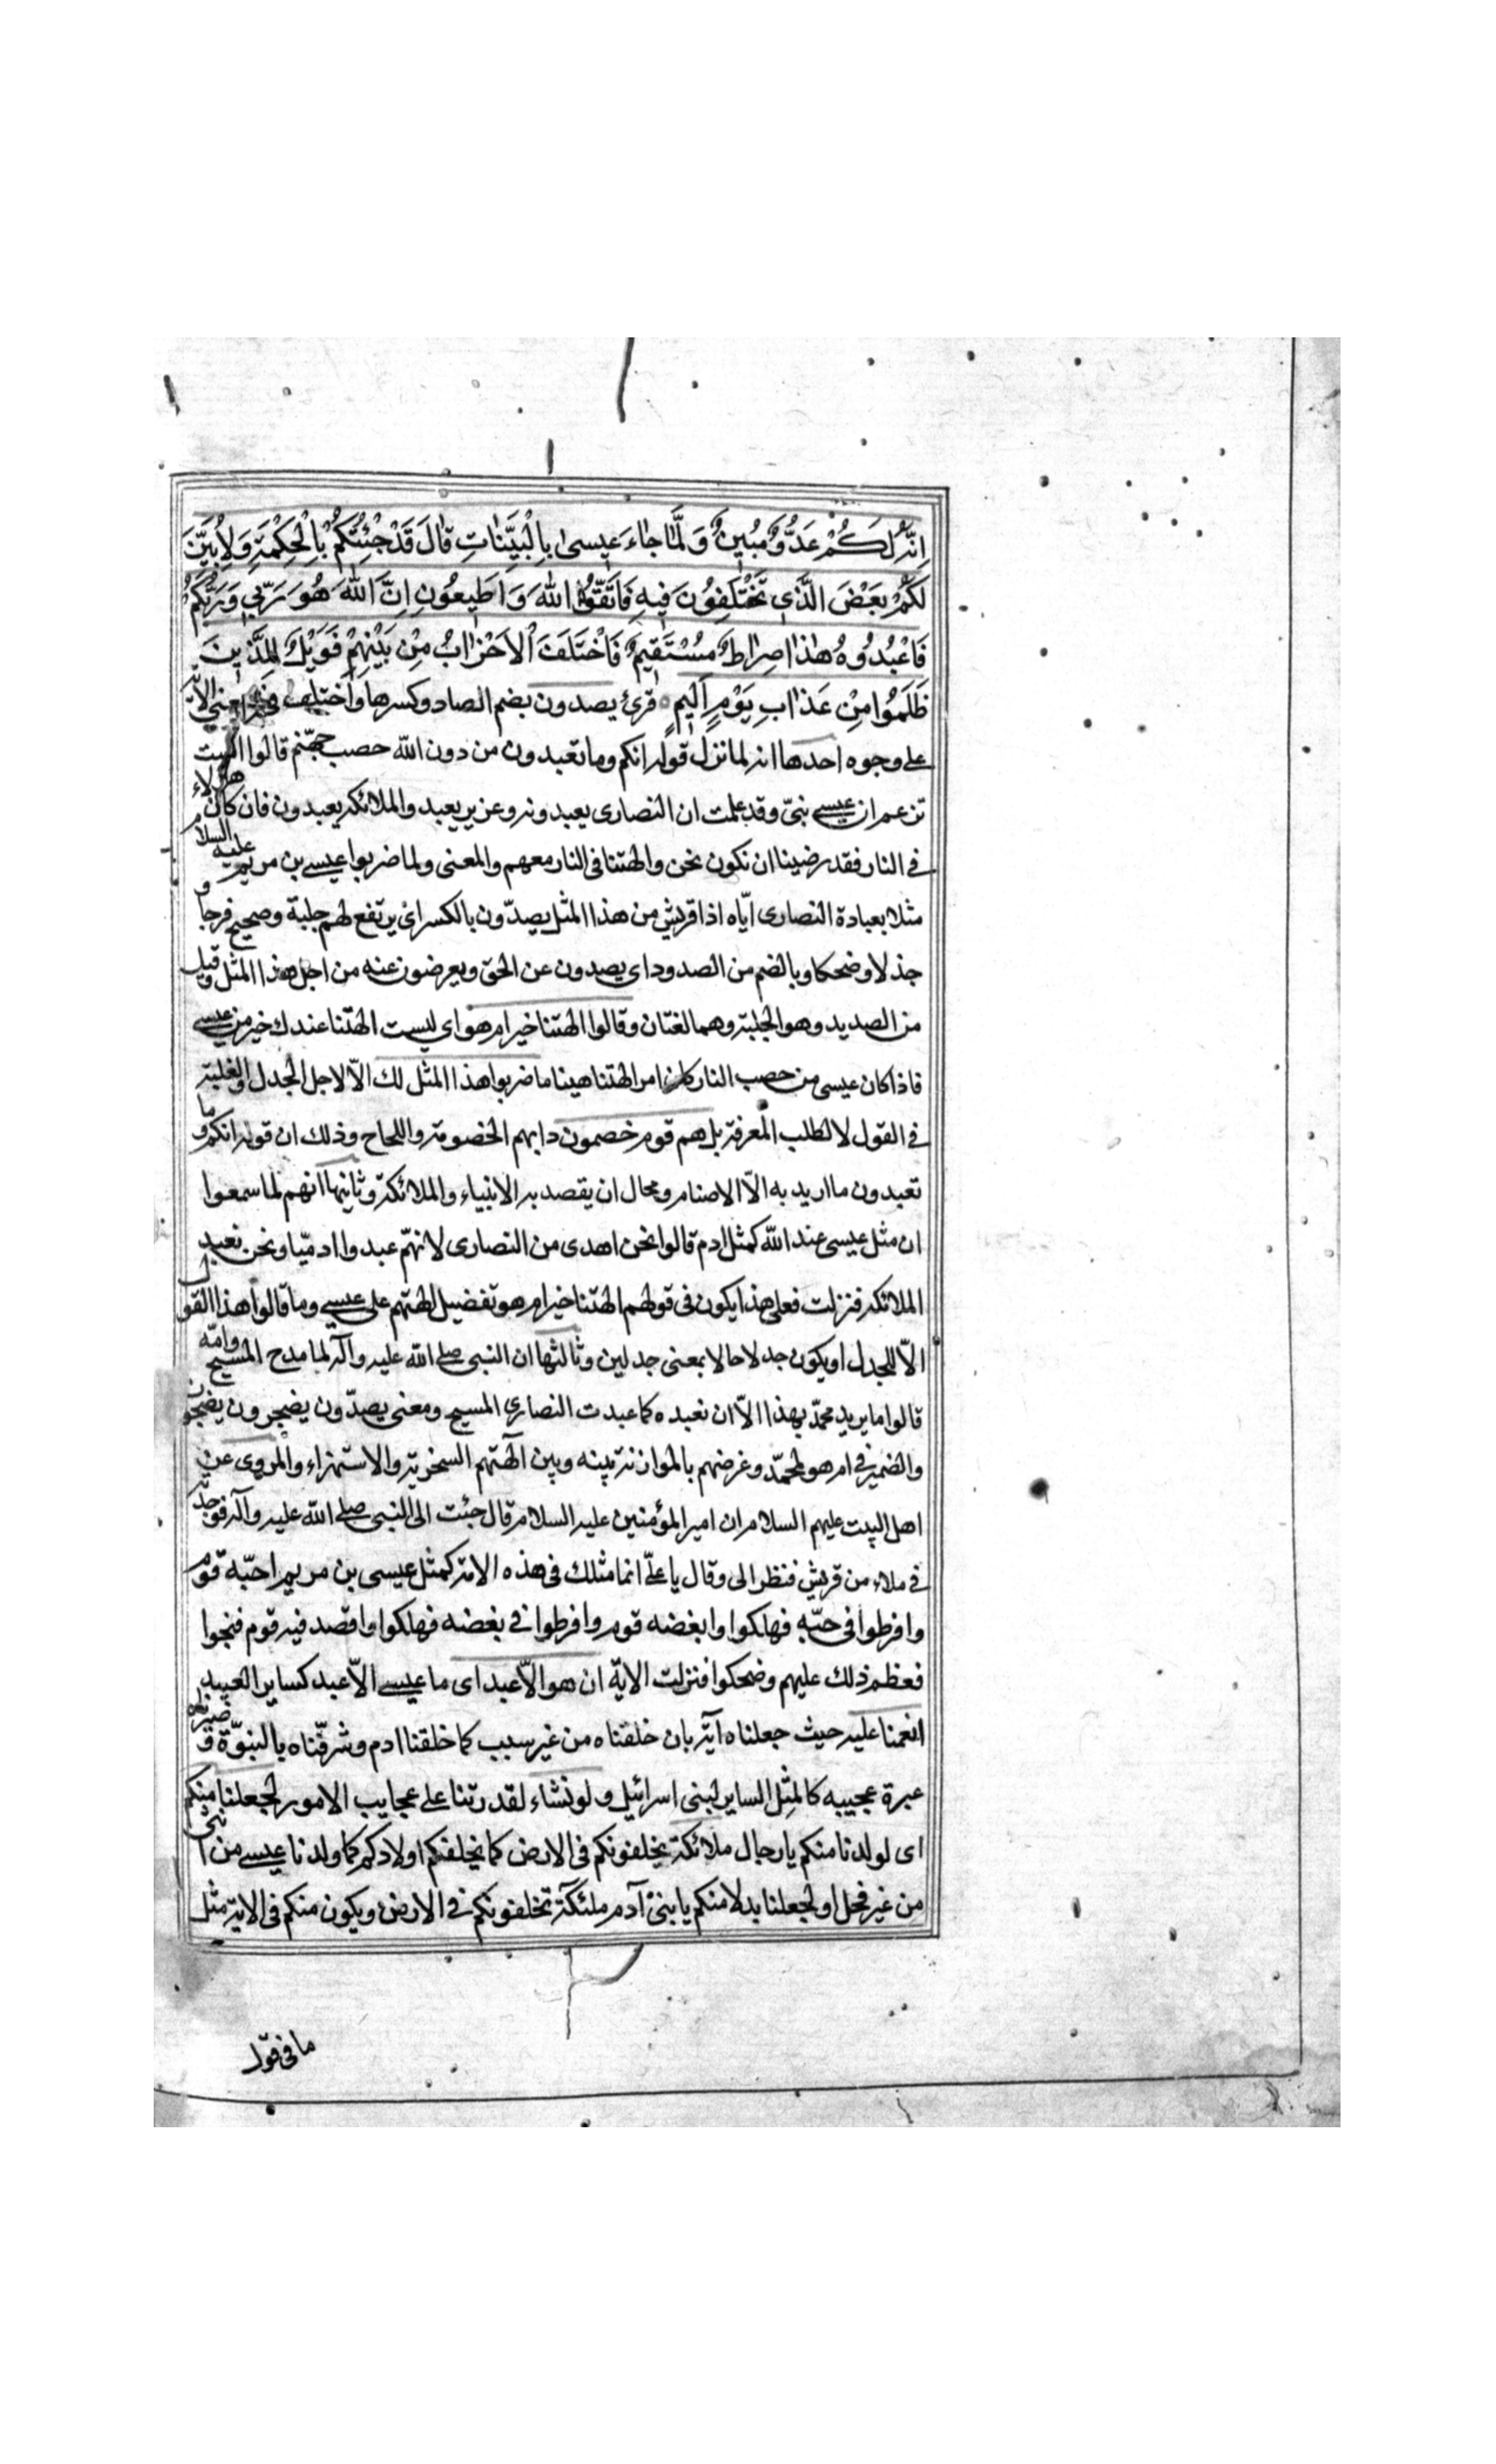 اِنَّهُ لَكُمْ عَدُوٌّ مُبِينٌ وَلَمَّا جَاءَ عِيسىٰ بِالْبَيِّنَاتِ قَالَ قَدْ جِئْتُكُمْ بِالْحِكْمَةِ وَلِاُبَيِّنَ
لَكُمْ بَعْضَ الَّذِي تَخْتَلِفُونَ فِيهِ فَاتَّقُوا اللهَ وَاَطِيعُونِ اِنَّ اللهَ هُوَ رَبِّي وَرَبُّكُمْ
فَاعْبُدُوهُ هٰذَا صِرَاطٌ مُسْتَقِيمٌ فَاخْتَلَفَ الْاَحْزَابُ مِنْ بَيْنِهِمْ فَوَيْلٌ لِلَّذِينَ
ظَلَمُوا مِنْ عَذَابِ يَوْمٍ اَلِيمٍ قرئ يصدون بضم الصاد وكسرها واختلف في معنى الآية
على وجوه احدها انه لما نزل قوله انكم وما تعبدون من دون الله حصب جهنم قالوا الست
تزعم ان عيسى نبيّ وقد علمت ان النصارى يعبدونه وعزير يعبد والملائكه يعبدون فان كان هؤلاء
في النار فقد رضينا ان نكون نحن والهتنا في النار معهم والمعنى ولما ضربوا عيسى بن مريم عليه السلام
مثلا بعبادة النصارى ايّاه اذا قريش من هذا المثل يصدّون بالكسر اي يرتفع لهم جلبة وضجيج فرحا و
جذلا وضحكا وبالضم من الصدود اي يصدون عن الحق ويعرضون عنه من اجل هذا المثل وقيل
من الصديد وهو الجلبة وهما لغتان وقالوا الهتنا خير ام هو اي ليست الهتنا عندك خير من عيسى
فاذا كان عيسى من حصب النار كان امر الهتنا هينا ما ضربوا هذا المثل لك الّا لاجل الجدل والغلبة
في القول لا لطلب المعرفة بل هم قوم خصمون دابهم الخصومة واللجاج وذلك ان قوله انكم وما
تعبدون ما اريد به الّا الاصنام ومحال ان يقصد به الانبياء والملائكة وثانيها انهم لما سمعوا
ان مثل عيسى عند الله كمثل ادم قالوا نحن اهدى من النصارى لانهم عبدوا ادميّا ونحن نعبد
الملائكه فنزلت فعلى هذا يكون في قولهم الهتنا خير ام هو تفضيل لهتهم على عيسى وما قالوا هذا القول
الّا للجدل او يكون جدلا حالا بمعنى جدلين وثالثها ان النبي صلى الله عليه وآله لما مدح المسيح وامّه
قالوا ما يريد محمّد بهذا الّا ان نعبده كما عبدت النصارى المسيح ومعنى يصدّون يضجرون يضجون
والضمير في ام هو لمحمّد وغرضهم بالموازنة بينه وبين آلهتهم السخرية والاستهزاء والمروى عن
اهل البيت عليهم السلام ان امير المؤمنين عليه السلام قال جئت الى النبي صلى الله عليه وآله فوجدته
في ملاء من قريش فنظر الى وقال يا علىّ انما مثلك في هذه الامة كمثل عيسى بن مريم احبّه قوم
وافرطوا في حبّه فهلكوا وابغضه قوم وافرطوا في بغضه فهلكوا واقصد فيه قوم فنجوا
فعظم ذلك عليهم وضحكوا فنزلت الاية ان هو الّا عبد اى ما عيسى الّا عبد كساير العبيد
انعمنا عليه حيث جعلناه آية بان خلقناه من غير سبب كما خلقنا ادم وشرفّناه بالنبوّة و صيرناه
عبرة عجيبه كالمثل الساير لبنى اسرائيل ولو نشاء لقدرتنا على عجايب الامور لجعلنا منكم
اى لولدنا منكم يا رجال ملائكة يخلفونكم في الارض كما يخلفكم اولادكم كما ولدنا عيسى من انثى
من غير فحل او لجعلنا بدلا منكم يا بنى آدم ملئكة تخلفونكم في الارض ويكون منكم في الاية مثل
ما في قوله